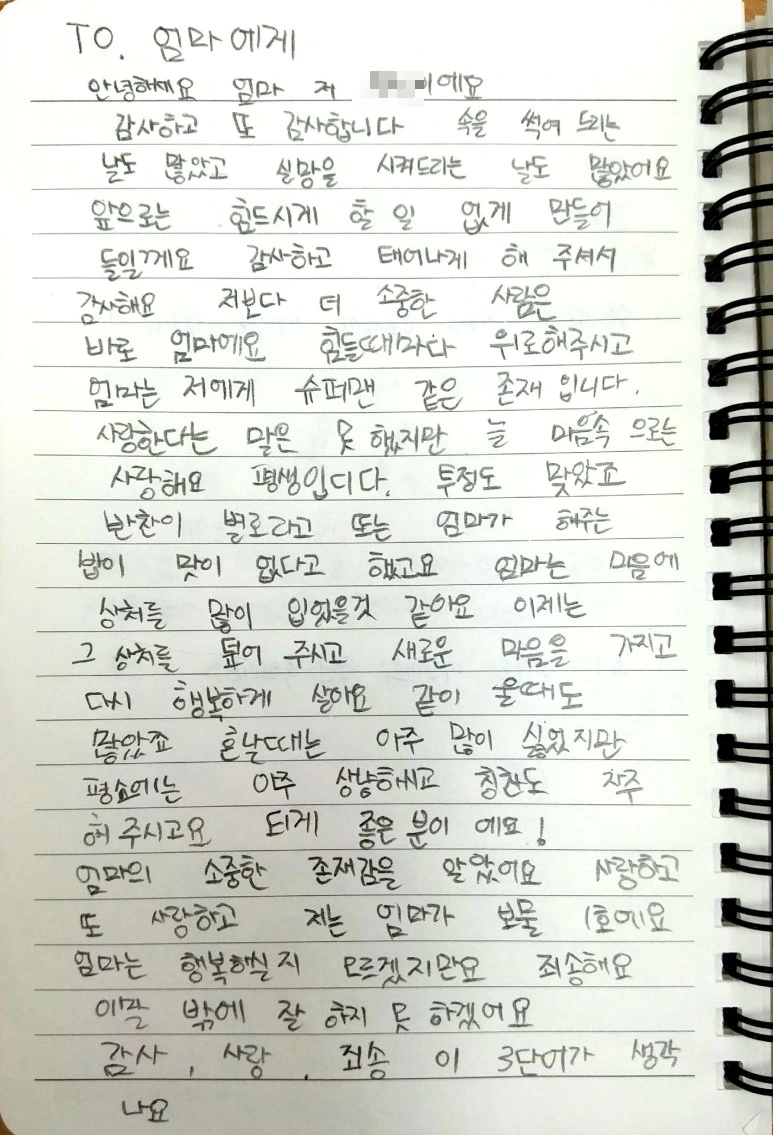 TO. 엄마에게
안녕하세요 엄마 저 이에요
감사하고 또 감사합니다 속을 썩여 드리는
날도 많았고 실망을 시켜드리는 날도 많았어요
앞으로는 힘드시게 할 일 없게 만들어
들일게요 감사하고 태어나게 해 주셔서
감사해요 저보다 더 소중한 사람은
바로 엄마에요 힘들때마다 위로해주시고
엄마는 저에게 슈퍼맨 같은 존재 입니다.
사랑한다는 말은 못 했지만 늘 마음속 으로는
사랑해요 평생입디다. 투정도 맞았죠
반찬이 별로라고 또는 엄마가 해주는
밥이 맛이 없다고 했고요 엄마는 마음에
상처를 많이 입었을것 같아요 이제는
그 상처를 덮어 주시고 새로운 마음을 가지고
다시 행복하게 살아요 같이 울때도
많았죠 혼날때는 아주 많이 싫었지만
평소에는 아주 상냥하시고 칭찬도 자주
해 주시고요 되게 좋은 분이 에요!
엄마의 소중한 존재감을 알았어요 사랑하고
또 사랑하고 저는 엄마가 보물 1호에요
엄마는 행복하실지 모르겠지만요 죄송해요
이말 밖에 잘 하지 못 하겠어요
감사, 사랑, 죄송 이 3단어가 생각
나요